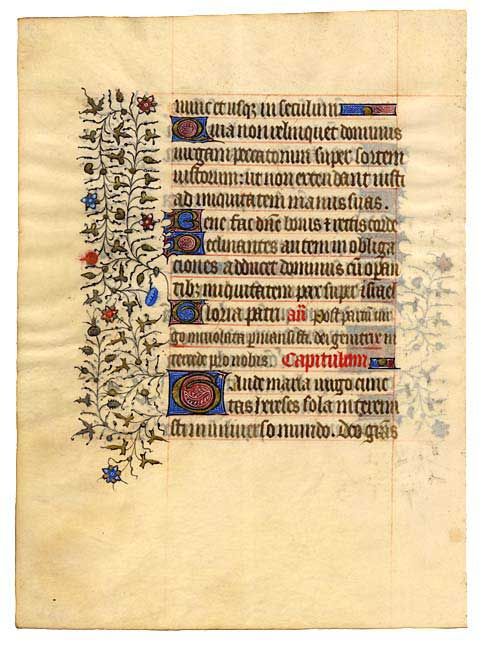 nunc et usqꝫ in seculum
Quia non relinquet dominus
uirgam peccatorum super sortem
iustorum: ut non extendant iusti
ad iniquitatem manus suas.
Bene fac dñe bonis ⁊ rectis corde
Declinantes autem in obliga
ciones adducet dominus cũ operan
tibꝫ iniquitatem pax super israel
Gloria patri añ Post partũ uir
go inuiolata pmansisti. dei genitrix in
tercede pro nobis. Capitulum
Gaude maria uirgo cunc
tas hereses sola interem
isti in uniuerso mundo. Deo grãs